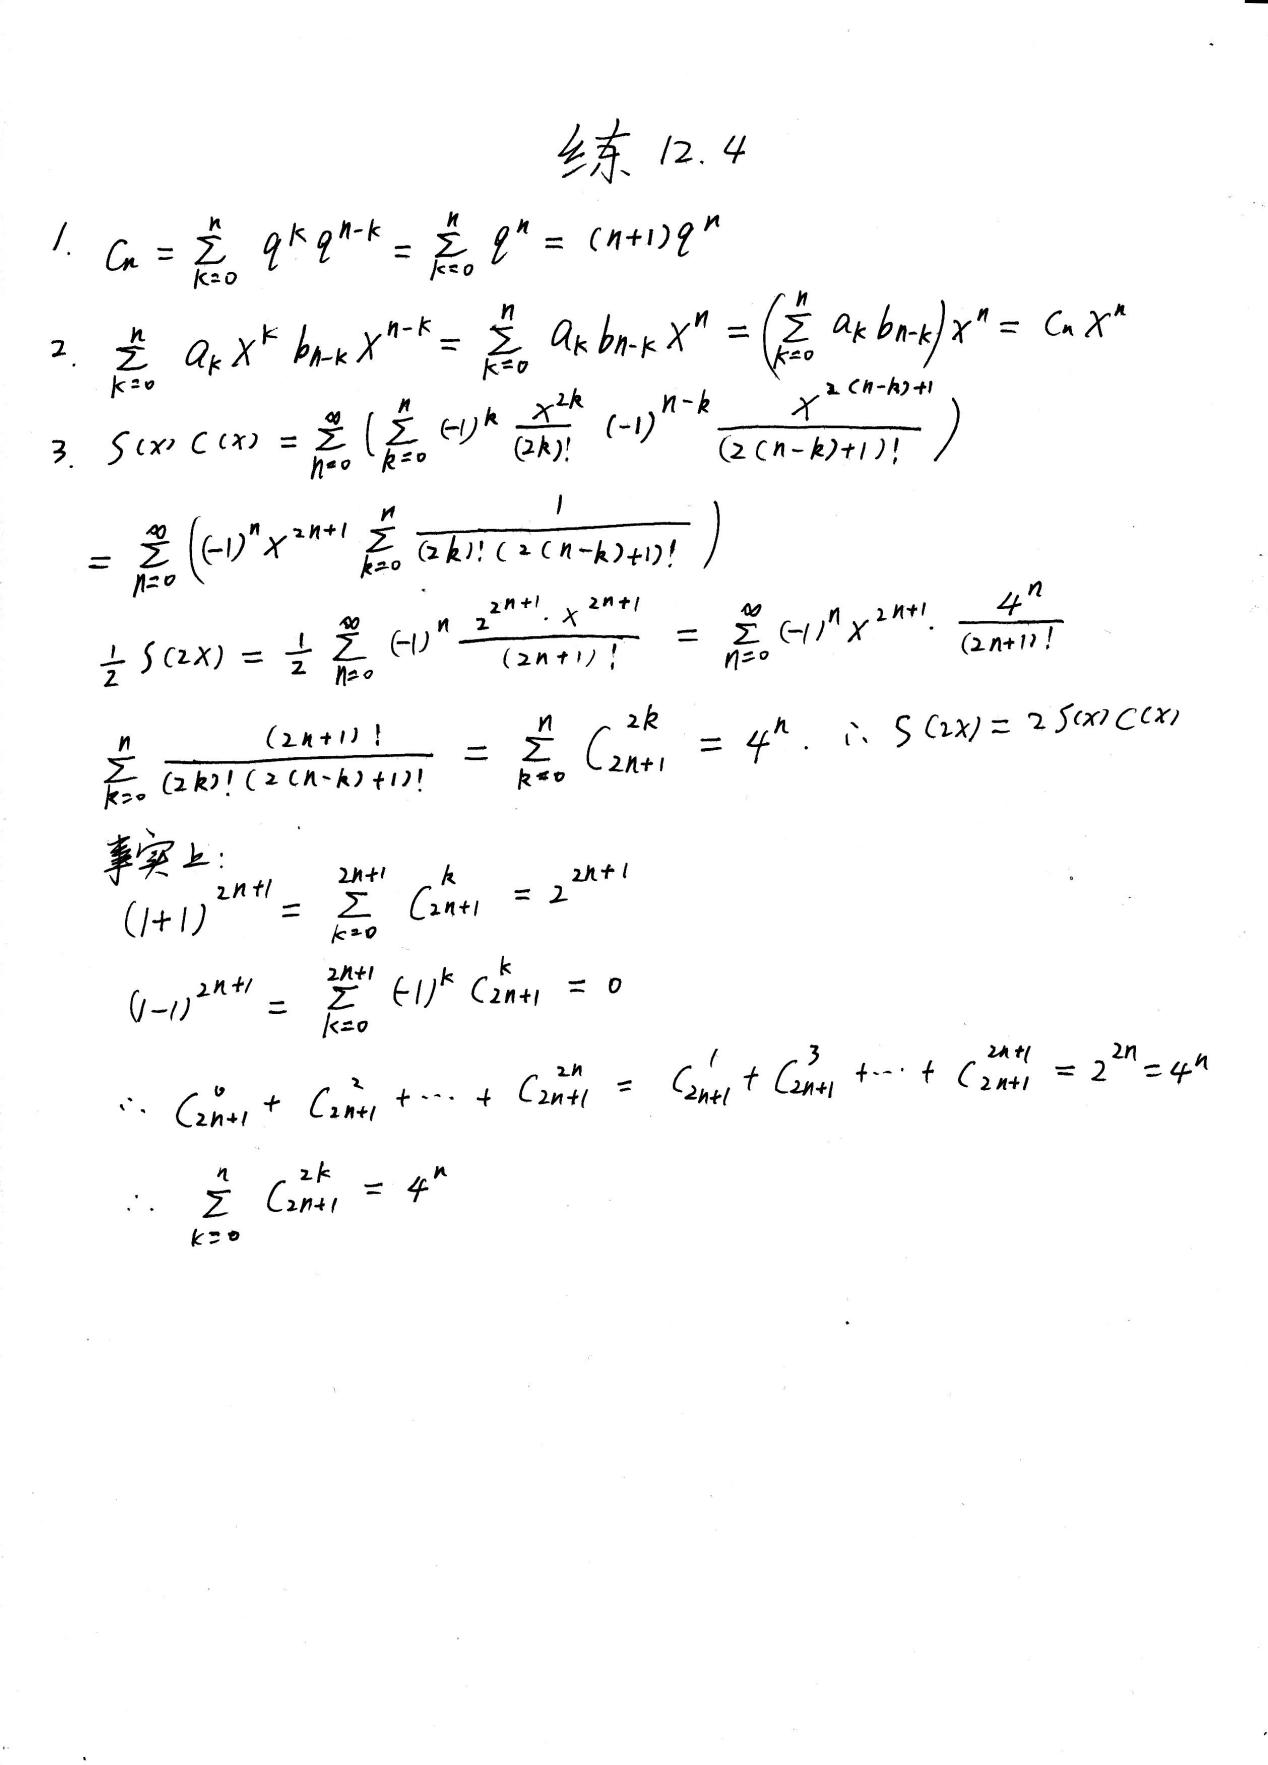 练 12.4
1. Cₙ = \sum_{k=0}^{n} q^k q^{n-k} = \sum_{k=0}^{n} q^n = (n+1)q^n
2. \sum_{k=0}^{n} a_k x^k b_{n-k} x^{n-k} = \sum_{k=0}^{n} a_k b_{n-k} x^n = (\sum_{k=0}^{n} a_k b_{n-k}) x^n = C_n x^n
3. S(x) C(x) = \sum_{n=0}^{∞} (\sum_{k=0}^{n} (-1)^k \frac{x^{2k}}{(2k)!} (-1)^{n-k} \frac{x^{2(n-k)+1}}{(2(n-k)+1)!})
= \sum_{n=0}^{∞} ((-1)^n x^{2n+1} \sum_{k=0}^{n} \frac{1}{(2k)!(2(n-k)+1)!})
\frac{1}{2} S(2x) = \frac{1}{2} \sum_{n=0}^{∞} (-1)^n \frac{2^{2n+1} · x^{2n+1}}{(2n+1)!} = \sum_{n=0}^{∞} (-1)^n x^{2n+1} · \frac{4^n}{(2n+1)!}
\sum_{k=0}^{n} \frac{(2n+1)!}{(2k)!(2(n-k)+1)!} = \sum_{k=0}^{n} C_{2n+1}^{2k} = 4^n. ∴ S(2x) = 2S(x)C(x)
事实上:
(1+1)^{2n+1} = \sum_{k=0}^{2n+1} C_{2n+1}^{k} = 2^{2n+1}
(1-1)^{2n+1} = \sum_{k=0}^{2n+1} (-1)^k C_{2n+1}^{k} = 0
∴ C_{2n+1}^{0} + C_{2n+1}^{2} + ··· + C_{2n+1}^{2n} = C_{2n+1}^{1} + C_{2n+1}^{3} + ··· + C_{2n+1}^{2n+1} = 2^{2n} = 4^n
∴ \sum_{k=0}^{n} C_{2n+1}^{2k} = 4^n